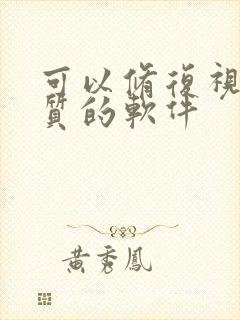 可以脩復視
質的軟件
黃秀鳳